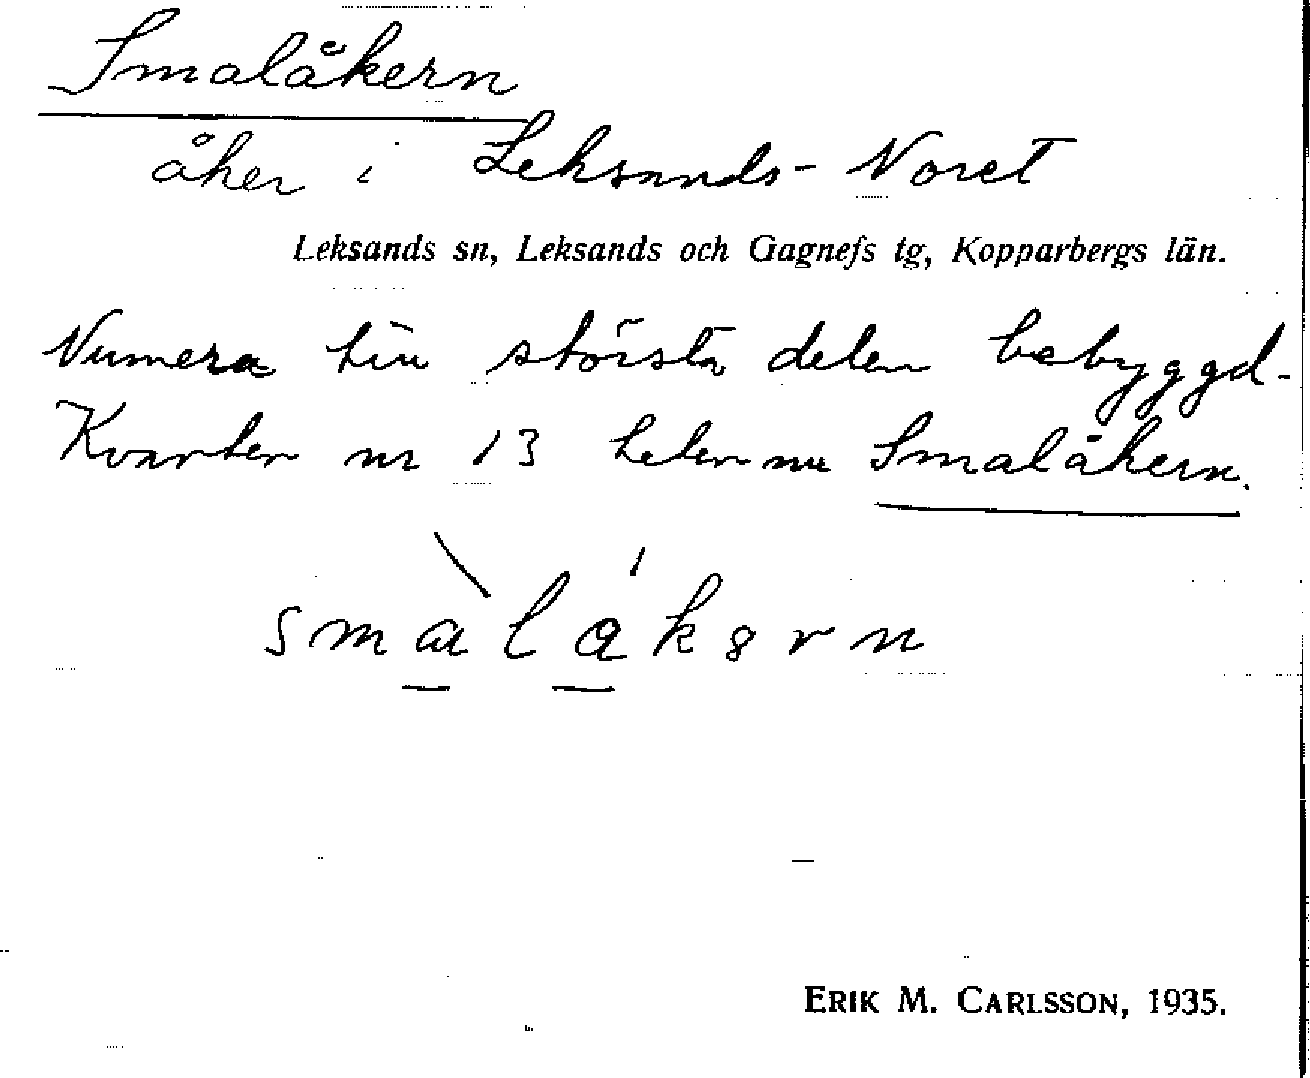 Smalåkern
åker i Leksands-Noret
Leksands sn, Leksands och Gagnefs tg, Kopparbergs län.
Numera till största delen bebyggd.
Kvarter nr 13 heter nu Smalåkern.
ERIK M. CARLSSON, 1935.